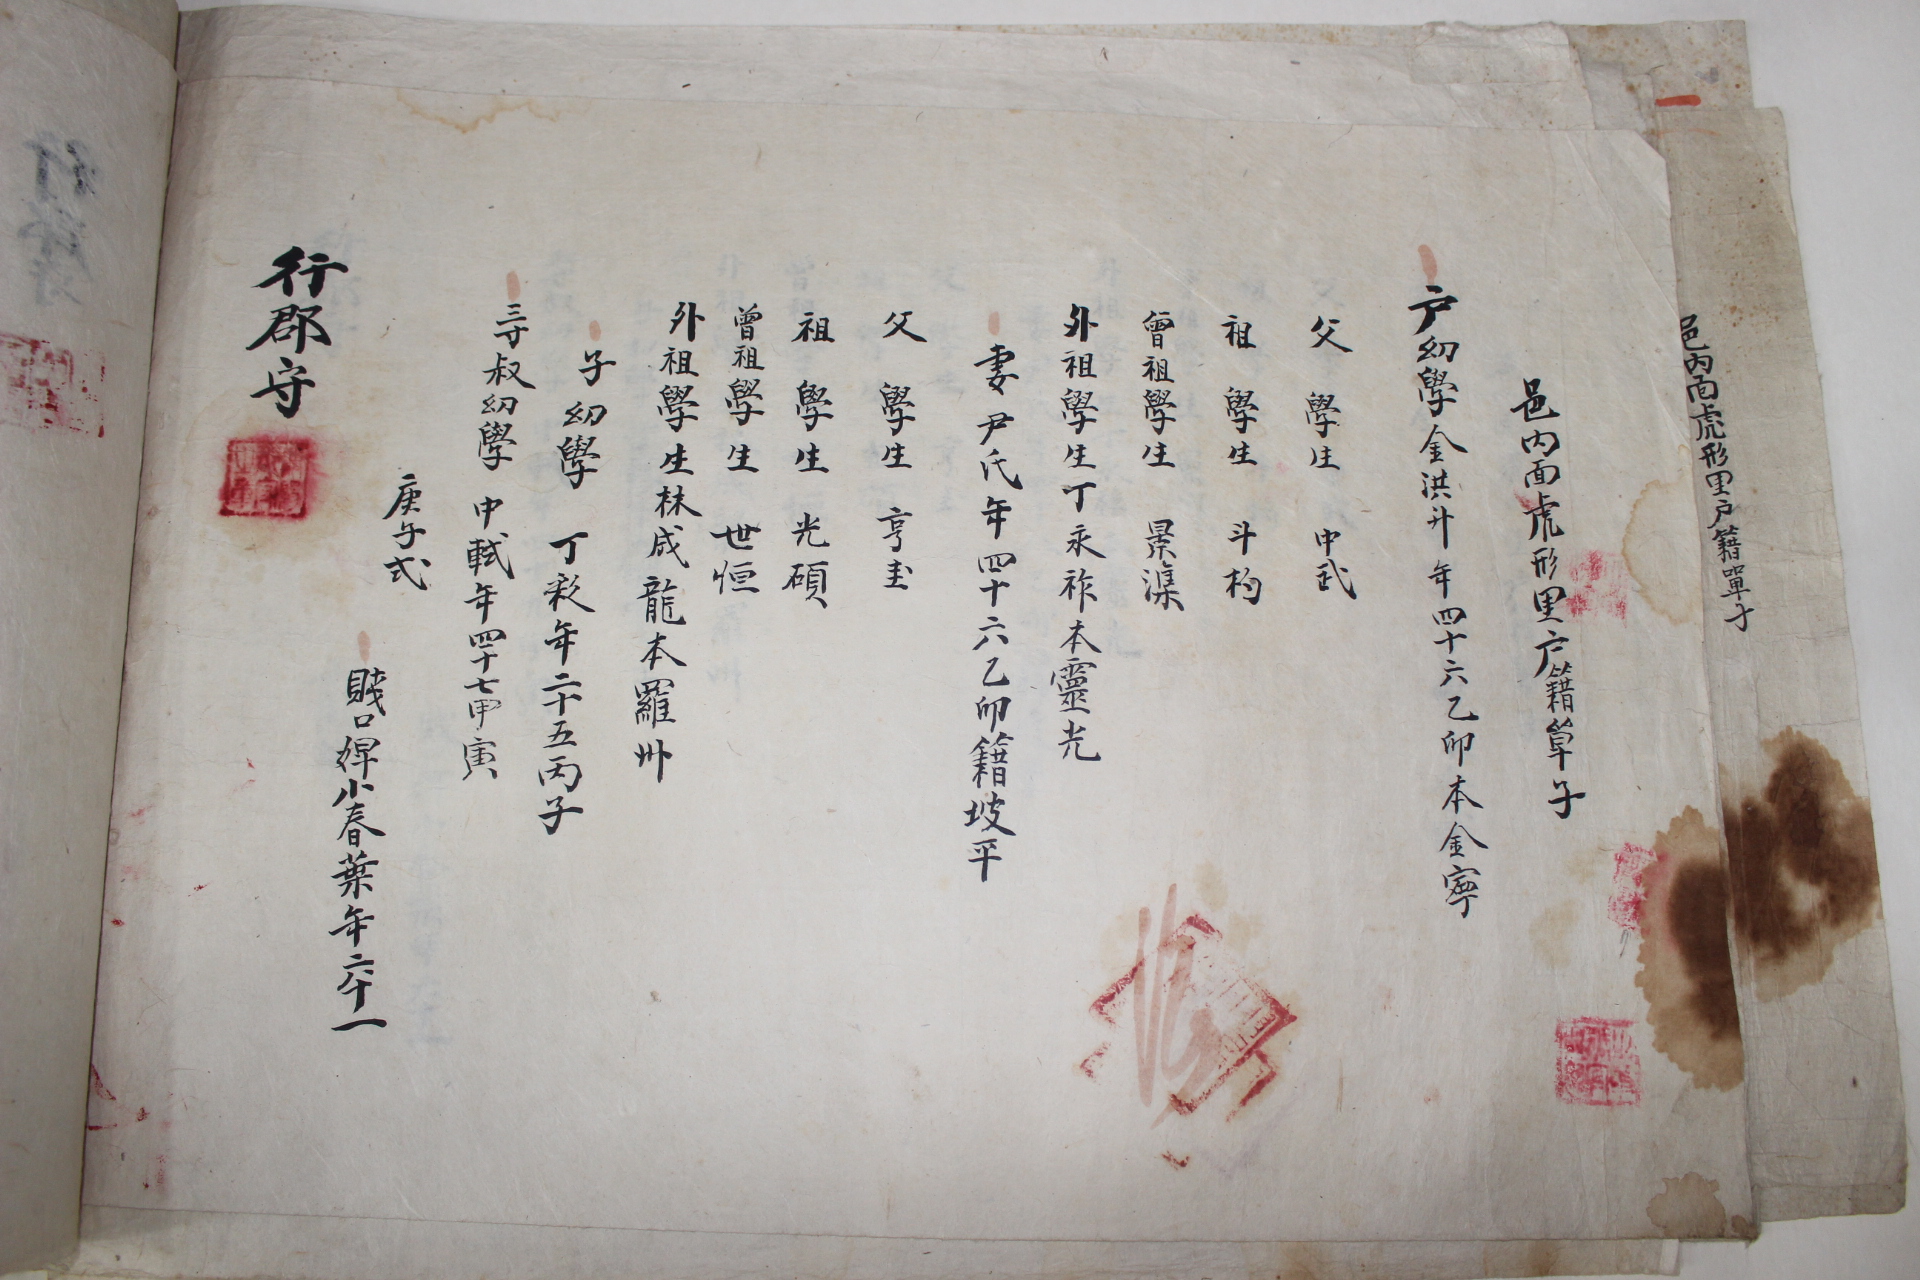 邑內面虎形里戶籍單子
邑內面虎形里戶籍單子
戶幼學金洪斗年四十六乙卯本金寧
父 學生 中武
祖 學生 斗杓
曾祖學生 景漢
外祖學生丁永祚本靈光
妻尹氏年四十六乙卯籍坡平
父 學生 亨圭
祖 學生 光碩
曾祖學生 世恒
外祖學生林成龍本羅州
子幼學 丁彩年二十五丙子
三寸叔幼學 中軾年四十七甲寅
賤口婢小春葉年六十一
庚子式
行郡守